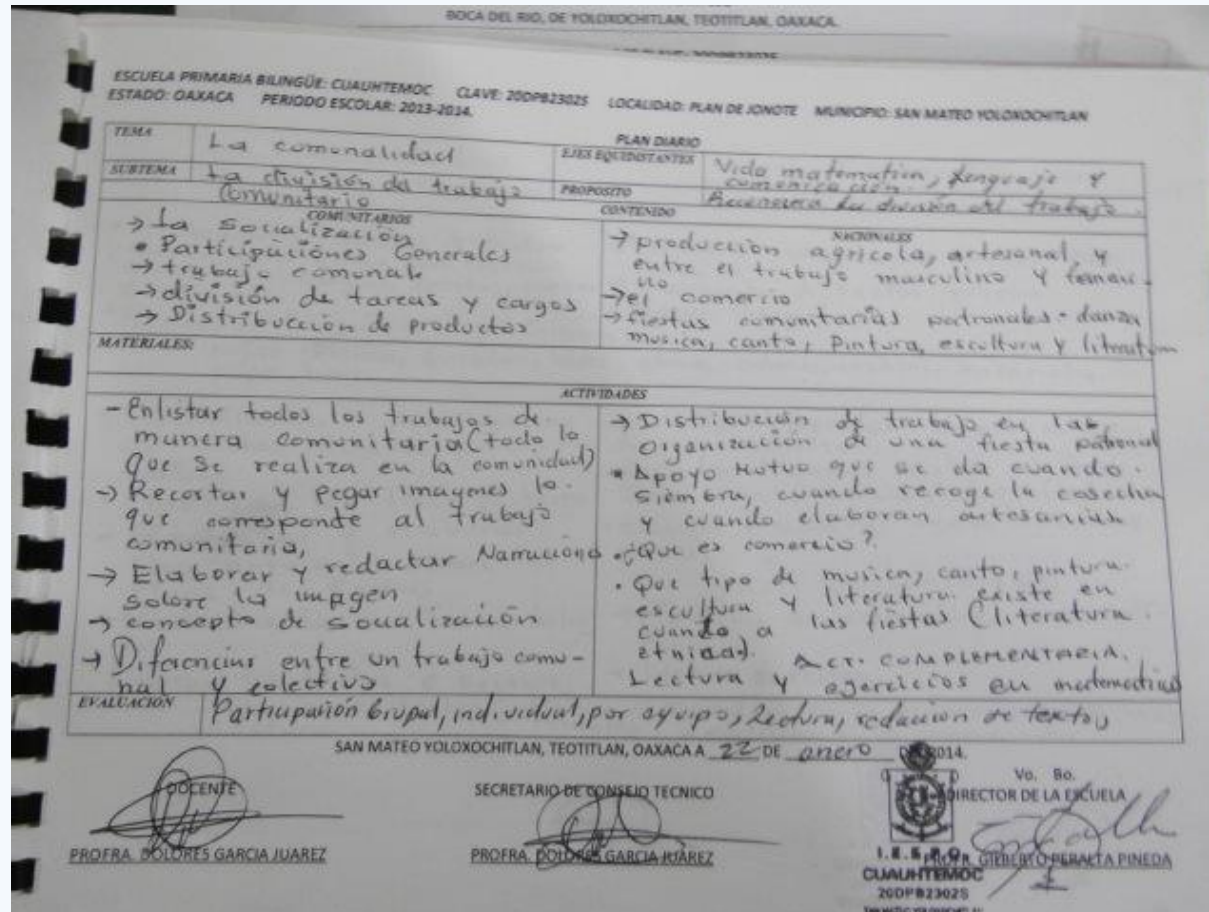 BOCA DEL RIO, DE YOLOXOCHITLAN, TEOTITLAN, OAXACA.
ESCUELA PRIMARIA BILINGÜE: CUAUHTEMOC CLAVE: 20DPB2302S LOCALIDAD: PLAN DE JONOTE MUNICIPIO: SAN MATEO YOLOXOCHITLAN
ESTADO: OAXACA PERIODO ESCOLAR: 2013-2014.
PLAN DIARIO
TEMA La comunalidad
EJES EQUIDISTANTES Vida matematica, Lenguaje y comunicación.
SUBTEMA La división del trabajo
Comunitario
PROPOSITO Reconocer La división del trabajo.
CONTENIDO
COMUNITARIOS
→ La Socialización
• Participaciónes Generales
→ trabajo comunal
→ división de tareas y cargos
→ Distribucción de productos
NACIONALES
→ producción agricola, artesanal, y
entre el trabajo masculino y femeni-
no
→ el comercio
→ fiestas comunitarias patronales - danza
musica, canto, Pintura, escultura y literatura
MATERIALES:
ACTIVIDADES
- Enlistar todos los trabajos de
manera comunitaria (todo lo
que se realiza en la comunidad)
→ Recortar y pegar imagenes lo
que corresponde al trabajo
comunitario,
→ Elaborar y redactar Narraciones
sobre la imagen
→ concepto de socialización
→ Diferencias entre un trabajo comu-
nal y colectivo
→ Distribución de trabajo en las
organización de una fiesta patronal
• Apoyo Mutuo que se da cuando
siembra, cuando recoge la cosecha
y cuando elaboran artesanias
• ¿Que es comercio?
• Que tipo de musica, canto, pintura
escultura y literatura existe en
cuando a las fiestas (literatura
etnias).
ACT. COMPLEMENTARIA.
Lectura y ejercicios en matematicas
EVALUACIÓN Participación Grupal, individual, por equipo, Lectura, redacion de textos
SAN MATEO YOLOXOCHITLAN, TEOTITLAN, OAXACA A 22 DE enero 2014.
DOCENTE
PROFRA. DOLORES GARCIA JUAREZ
SECRETARIO DE CONSEJO TECNICO
PROFRA. DOLORES GARCIA JUAREZ
Vo. Bo.
DIRECTOR DE LA ESCUELA
PROFR. GILBERTO PERALTA PINEDA
I.E.E.P.O.
CUAUHTEMOC
20DPB2302S